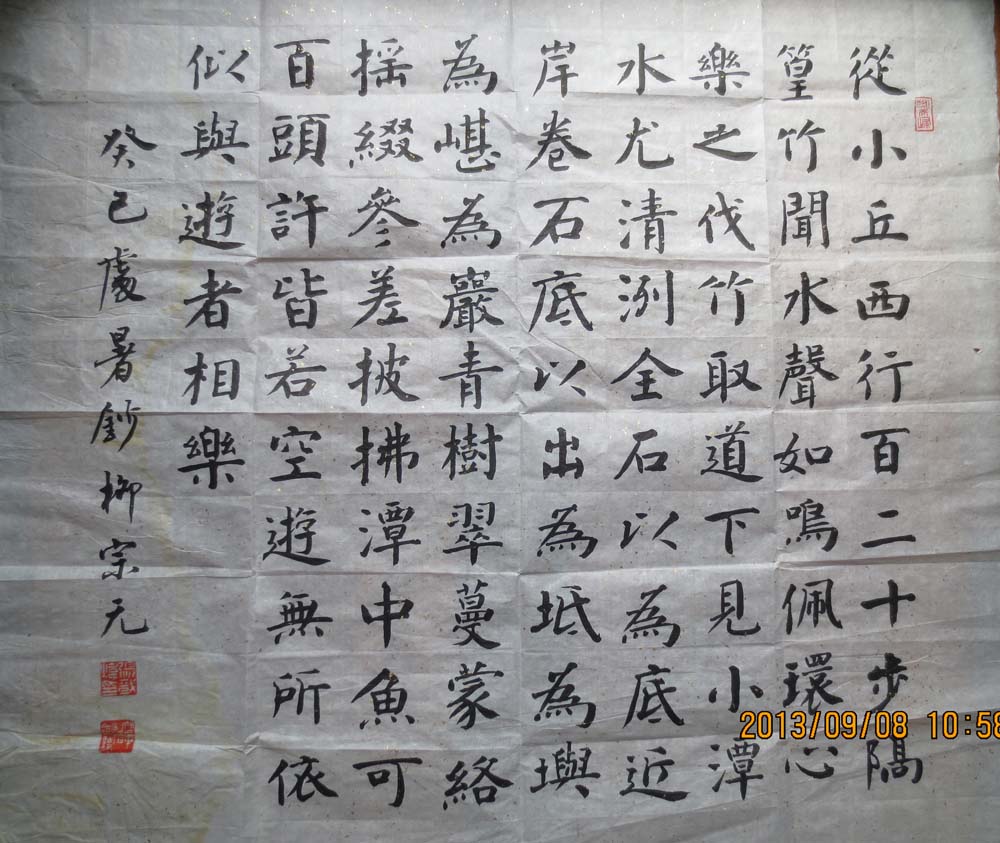 從小丘西行百二十步隔
篁竹聞水聲如鳴佩環心
樂之伐竹取道下見小潭
水尤清洌全石以為底近
岸卷石底以出為坻為嶼
為嵁為巖青樹翠蔓蒙絡
揺綴參差披拂潭中魚可
百頭許皆若空遊無所依
似與遊者相樂
癸巳處暑鈔柳宗元
2013/09/08 10:58